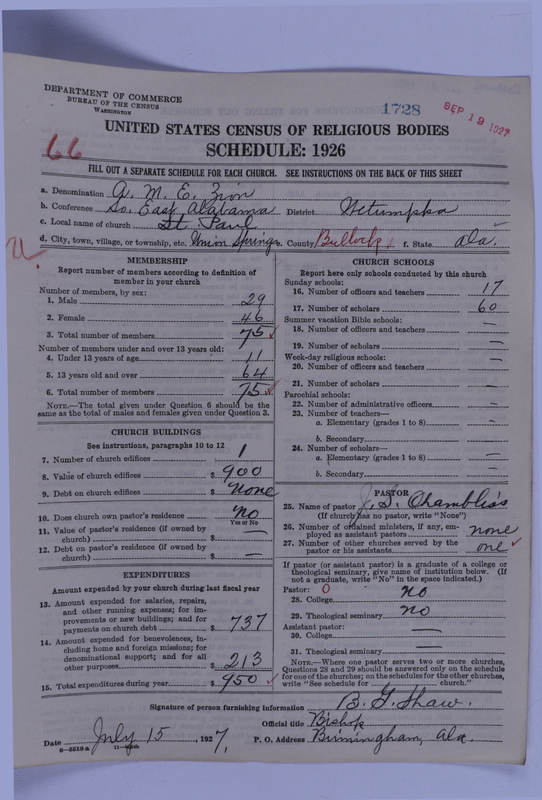 DEPARTMENT OF COMMERCE
BUREAU OF THE CENSUS
WASHINGTON
1728
SEP 19 1927
UNITED STATES CENSUS OF RELIGIOUS BODIES
SCHEDULE: 1926
66
FILL OUT A SEPARATE SCHEDULE FOR EACH CHURCH. SEE INSTRUCTIONS ON THE BACK OF THIS SHEET
a. Denomination A. M. E. Zion
b. Conference So. East Alabama District Wetumpka
c. Local name of church St. Paul
d. City, town, village, or township, etc. Union Springs e. County Bullock f. State Ala.
MEMBERSHIP
Report number of members according to definition of member in your church
Number of members, by sex:
1. Male 29
2. Female 46
3. Total number of members 75
Number of members under and over 13 years old:
4. Under 13 years of age 11
5. 13 years old and over 64
6. Total number of members 75
NOTE.—The total given under Question 6 should be the same as the total of males and females given under Question 3.
CHURCH BUILDINGS
See instructions, paragraphs 10 to 12
7. Number of church edifices 1
8. Value of church edifices $ 900
9. Debt on church edifices $ None
10. Does church own pastor's residence No
Yes or No
11. Value of pastor's residence (if owned by church) $ —
12. Debt on pastor's residence (if owned by church) $ —
EXPENDITURES
Amount expended by your church during last fiscal year
13. Amount expended for salaries, repairs, and other running expenses; for improvements or new buildings; and for payments on church debt $ 737
14. Amount expended for benevolences, including home and foreign missions; for denominational support; and for all other purposes $ 213
15. Total expenditures during year $ 950
CHURCH SCHOOLS
Report here only schools conducted by this church
Sunday schools:
16. Number of officers and teachers 17
17. Number of scholars 60
Summer vacation Bible schools:
18. Number of officers and teachers —
19. Number of scholars —
Week-day religious schools:
20. Number of officers and teachers —
21. Number of scholars —
Parochial schools:
22. Number of administrative officers —
23. Number of teachers—
a. Elementary (grades 1 to 8) —
b. Secondary —
24. Number of scholars—
a. Elementary (grades 1 to 8) —
b. Secondary —
PASTOR
25. Name of pastor J. S. Chambliss
(If church has no pastor, write "None")
26. Number of ordained ministers, if any, employed as assistant pastors none
27. Number of other churches served by the pastor or his assistants one
If pastor (or assistant pastor) is a graduate of a college or theological seminary, give name of institution below. (If not a graduate, write "No" in the space indicated.)
Pastor: 0
28. College no
29. Theological seminary no
Assistant pastor:
30. College —
31. Theological seminary —
NOTE.—Where one pastor serves two or more churches, Questions 28 and 29 should be answered only on the schedule for one of the churches; on the schedules for the other churches, write "See schedule for church."
Signature of person furnishing information B. G. Shaw.
Official title Bishop
Date July 15, 1927. P. O. Address Birmingham, Ala.